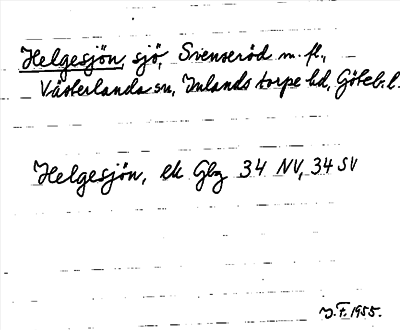 Helgesjön, sjö, Svenseröd m. fl.,
Västerlanda sn, Inlands torpe hd, Göteb. l.
Helgesjön, ek Gbg 34 NV, 34 SV
J. F. 1955.